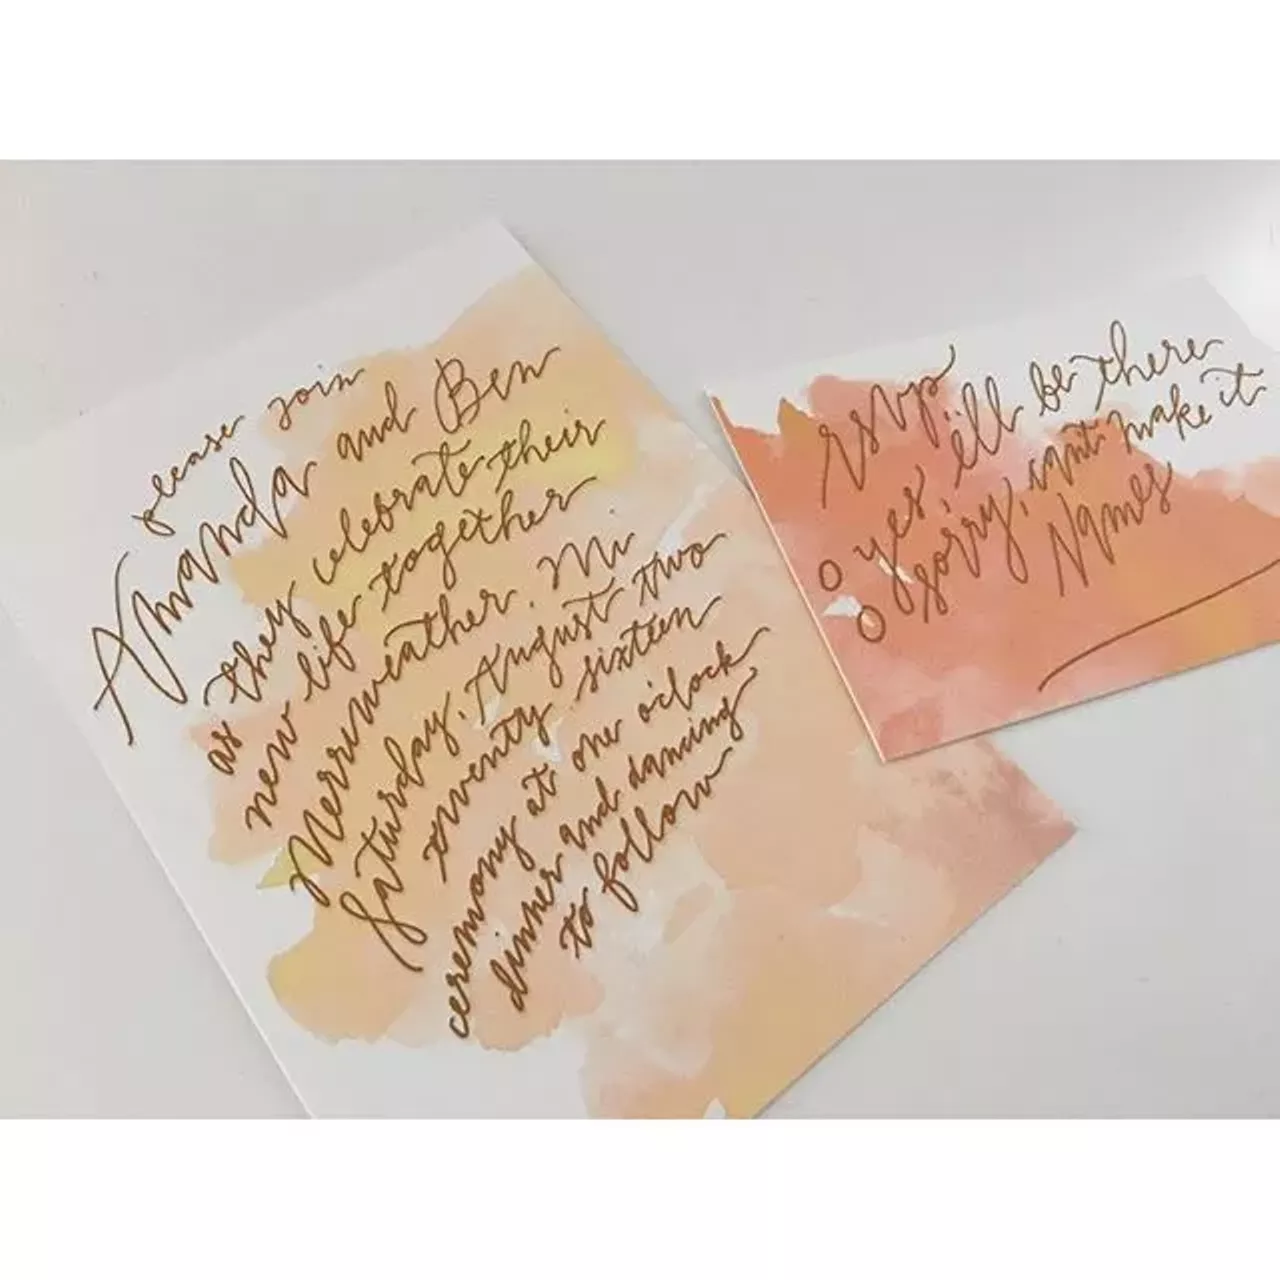 please join
Amanda and Ben
as they celebrate their
new life together
Merreweather. Mi.
Saturday, August two
twenty sixteen
ceremony at one o'clock
dinner and dancing
to follow
rsvp
yes, i'll be there
sorry, can't make it
Names